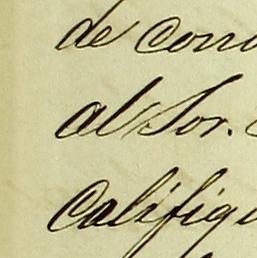 de con
al Sor.
Califiqu